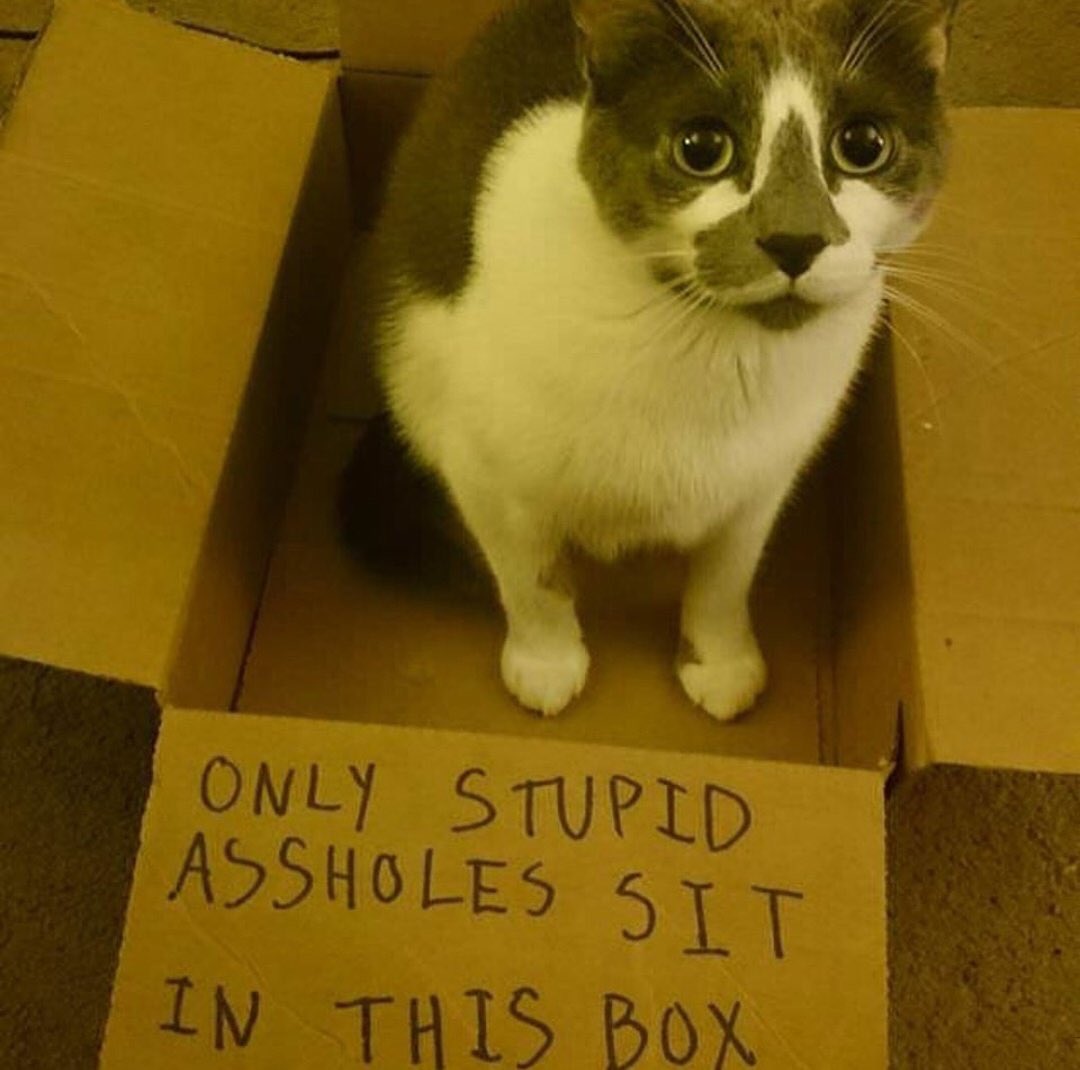 ONLY STUPID
ASSHOLES SIT
IN THIS BOX